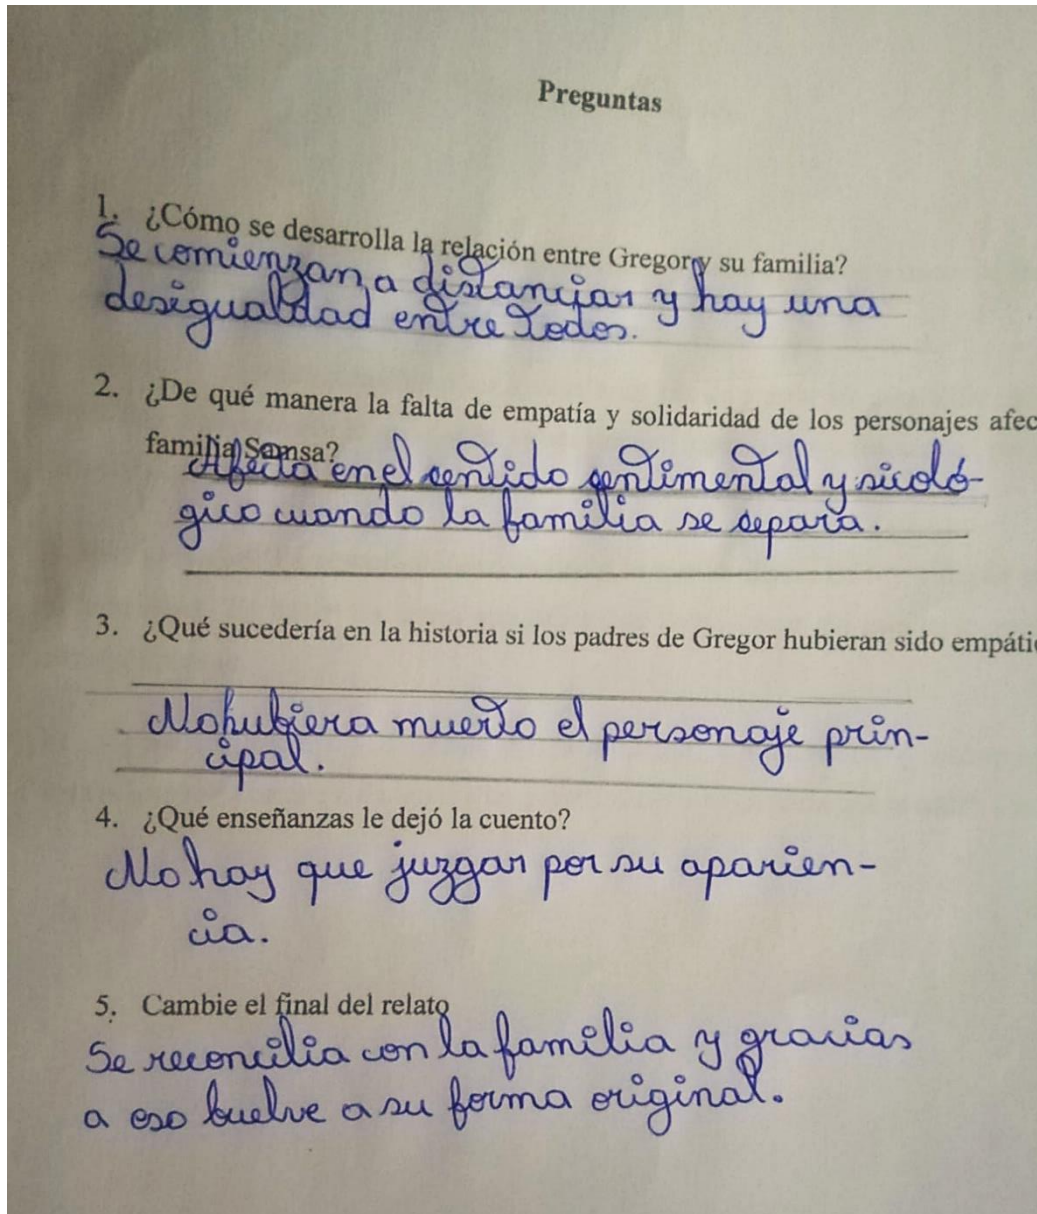 Preguntas
1. ¿Cómo se desarrolla la relación entre Gregor y su familia?
Se comienzan a distanciar y hay una
desigualdad entre todos.
2. ¿De qué manera la falta de empatía y solidaridad de los personajes afec
familia Samsa?
Afecta en el sentido sentimental y sicoló-
gico cuando la familia se separa.
3. ¿Qué sucedería en la historia si los padres de Gregor hubieran sido empáti
No hubiera muerto el personaje prin-
cipal.
4. ¿Qué enseñanzas le dejó la cuento?
No hay que juzgar por su aparien-
cia.
5. Cambie el final del relato
Se reconcilia con la familia y gracias
a eso buelve a su forma original.